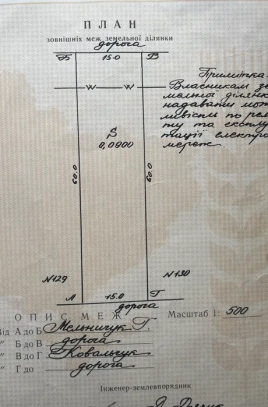 ПЛАН
зовнішніх меж земельної ділянки
дорога
Б 15.0 В
Примітка
Власникам зе
мельної ділянк
надавати мож
ливість по рем
ту та експлу
тації електро
мереж
W W
S
0,0900
60.0 60.0
N129 N130
А 15.0 Г
дорога
ОПИС МЕЖ Масштаб 1: 500
Від А до Б Мельничук Г.
" Б до В дорога
" В до Г Ковальчук
" Г до дорога
Інженер-землевпорядник